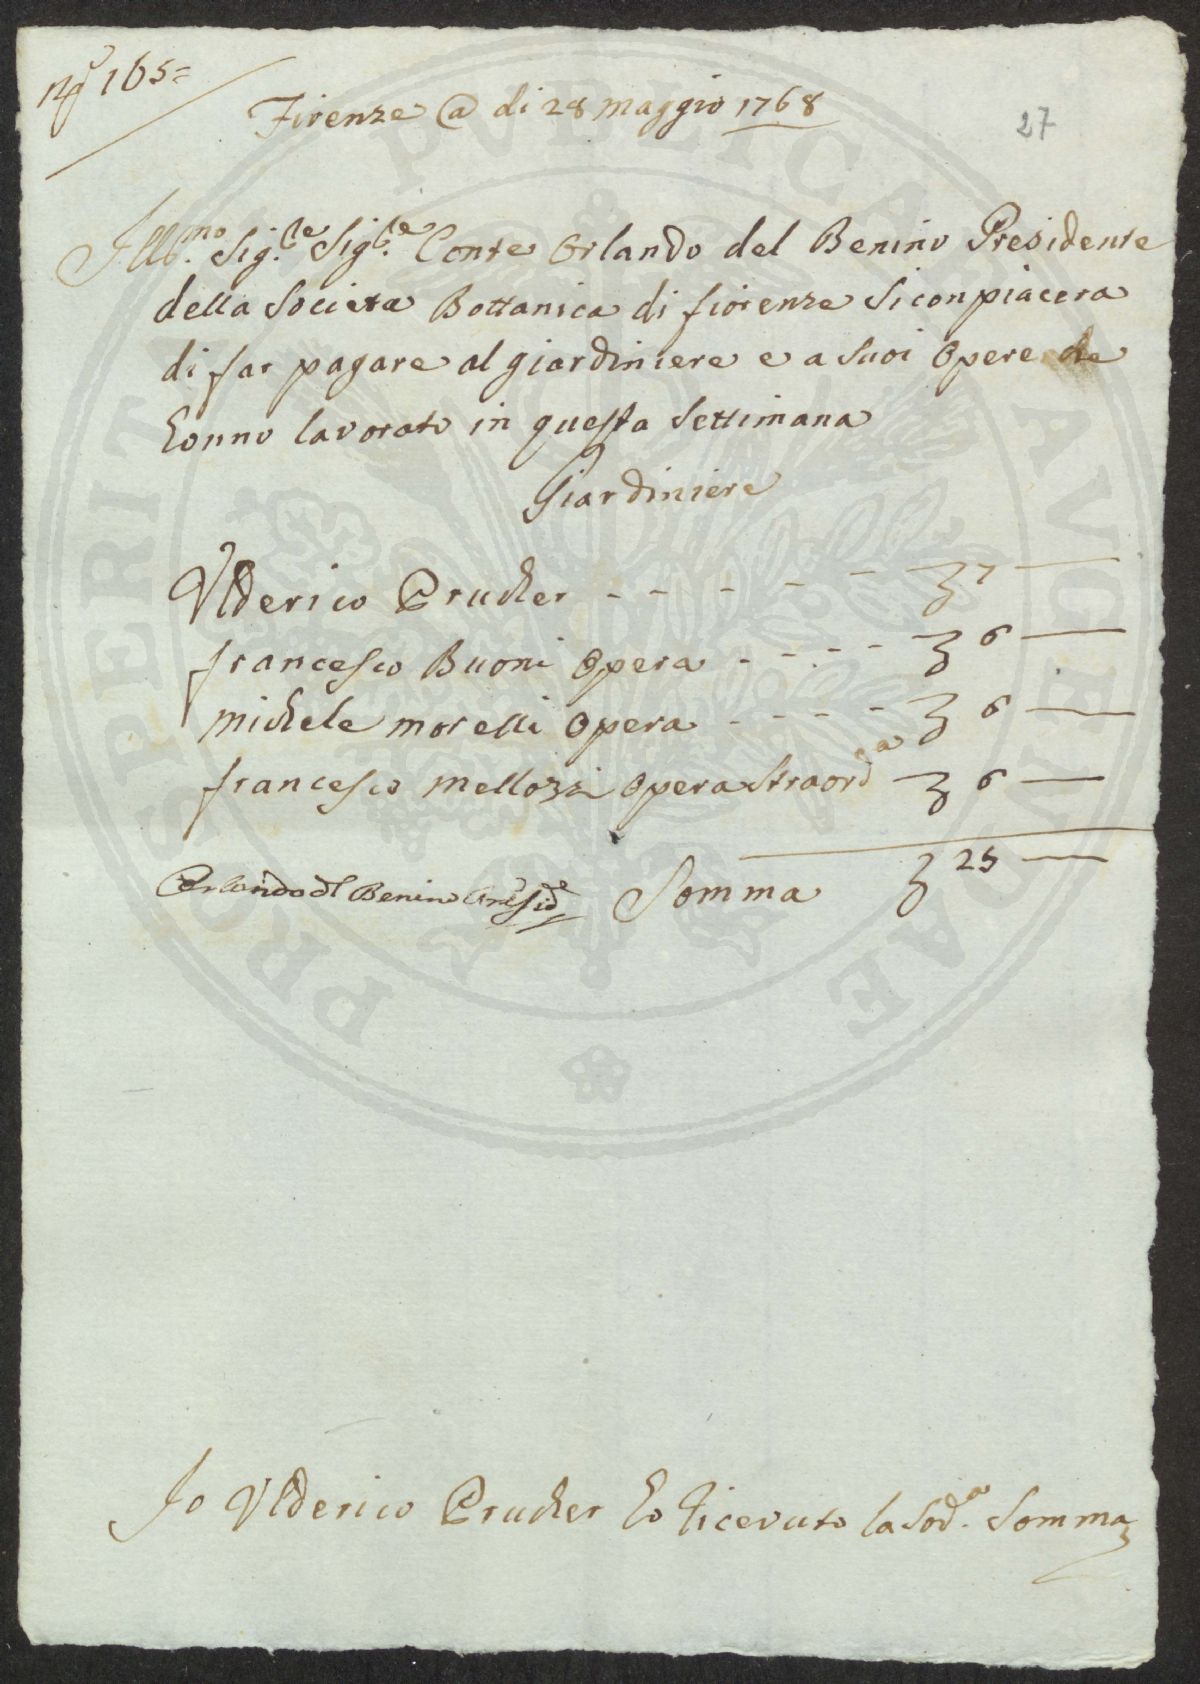 Nº 165=
Firenze @ di 28 maggio 1768
27
Illmo. Sig.re Sig.re Conte Orlando del Benino Presidente
della Societa Bottanica di fiorenze Si conpiacera
di far pagare al giardiniere e a suoi Opere che
honno lavorato in questa Settimana
Giardiniere
Ulderico Prucher - - - - - ʒ 7 —
francesco Buoni Opera - - - - ʒ 6 —
michele morelli Opera - - - - ʒ 6 —
francesco mellozzi Opera Straord.a ʒ 6 —
Orlando del Benino Presid.e Somma ʒ 25 —
Io Ulderico Prucher ho ricevuto la Sod.a Somma
PUBLICAE AUGENDAE PROSPERITATI